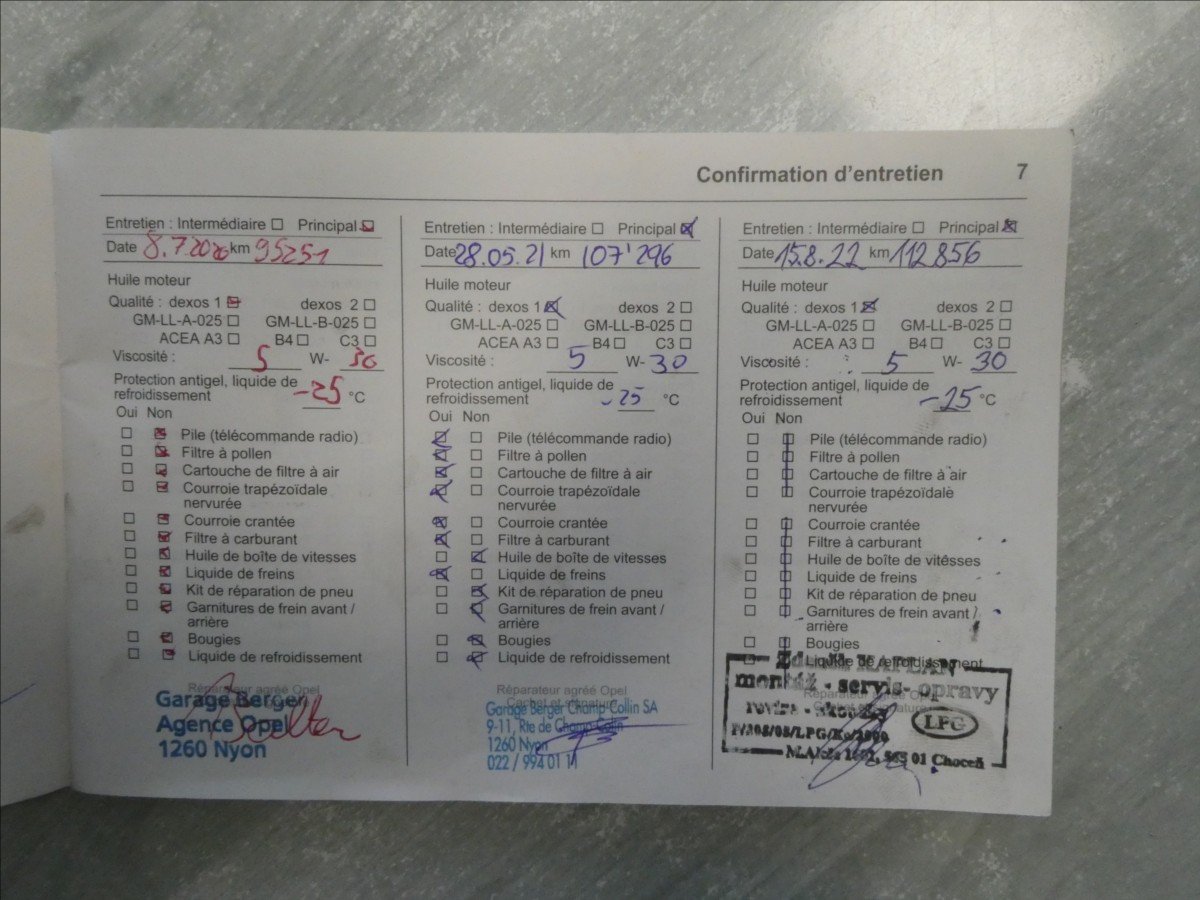 Confirmation d'entretien 7
Entretien : Intermédiaire ☐ Principal ☒
Date 8.7.2020 km 95251
Huile moteur
Qualité : dexos 1 ☒ dexos 2 ☐
GM-LL-A-025 ☐ GM-LL-B-025 ☐
ACEA A3 ☐ B4 ☐ C3 ☐
Viscosité : 5 W- 30
Protection antigel, liquide de
refroidissement -25 °C
Oui Non
☐ ☒ Pile (télécommande radio)
☐ ☒ Filtre à pollen
☐ ☒ Cartouche de filtre à air
☐ ☒ Courroie trapézoïdale
nervurée
☐ ☒ Courroie crantée
☐ ☒ Filtre à carburant
☐ ☒ Huile de boîte de vitesses
☐ ☒ Liquide de freins
☐ ☒ Kit de réparation de pneu
☐ ☒ Garnitures de frein avant /
arrière
☐ ☒ Bougies
☐ ☒ Liquide de refroidissement
Réparateur agréé Opel
Garage Berger
Agence Opel
1260 Nyon
Entretien : Intermédiaire ☐ Principal ☒
Date 28.05.21 km 107'296
Huile moteur
Qualité : dexos 1 ☒ dexos 2 ☐
GM-LL-A-025 ☐ GM-LL-B-025 ☐
ACEA A3 ☐ B4 ☐ C3 ☐
Viscosité : 5 W- 30
Protection antigel, liquide de
refroidissement -25 °C
Oui Non
☒ ☐ Pile (télécommande radio)
☒ ☐ Filtre à pollen
☒ ☐ Cartouche de filtre à air
☒ ☐ Courroie trapézoïdale
nervurée
☒ ☐ Courroie crantée
☒ ☐ Filtre à carburant
☐ ☒ Huile de boîte de vitesses
☒ ☐ Liquide de freins
☐ ☒ Kit de réparation de pneu
☐ ☒ Garnitures de frein avant /
arrière
☐ ☒ Bougies
☐ ☒ Liquide de refroidissement
Réparateur agréé Opel
Cachet et signature
Garage Berger Champ-Collin SA
9-11, Rte de Champ-Collin
1260 Nyon
022 / 994 01 11
Entretien : Intermédiaire ☐ Principal ☒
Date 15.8.22 km 112856
Huile moteur
Qualité : dexos 1 ☒ dexos 2 ☐
GM-LL-A-025 ☐ GM-LL-B-025 ☐
ACEA A3 ☐ B4 ☐ C3 ☐
Viscosité : 5 W- 30
Protection antigel, liquide de
refroidissement -25 °C
Oui Non
☐ ☐ Pile (télécommande radio)
☐ ☐ Filtre à pollen
☐ ☐ Cartouche de filtre à air
☐ ☐ Courroie trapézoïdale
nervurée
☐ ☐ Courroie crantée
☐ ☐ Filtre à carburant
☐ ☐ Huile de boîte de vitesses
☐ ☐ Liquide de freins
☐ ☐ Kit de réparation de pneu
☐ ☐ Garnitures de frein avant /
arrière
☐ ☐ Bougies
☐ ☐ Liquide de refroidissement
KAPLAN
montáž - servis - opravy
Réparateur agréé Opel
LPG
565 01 Choceň